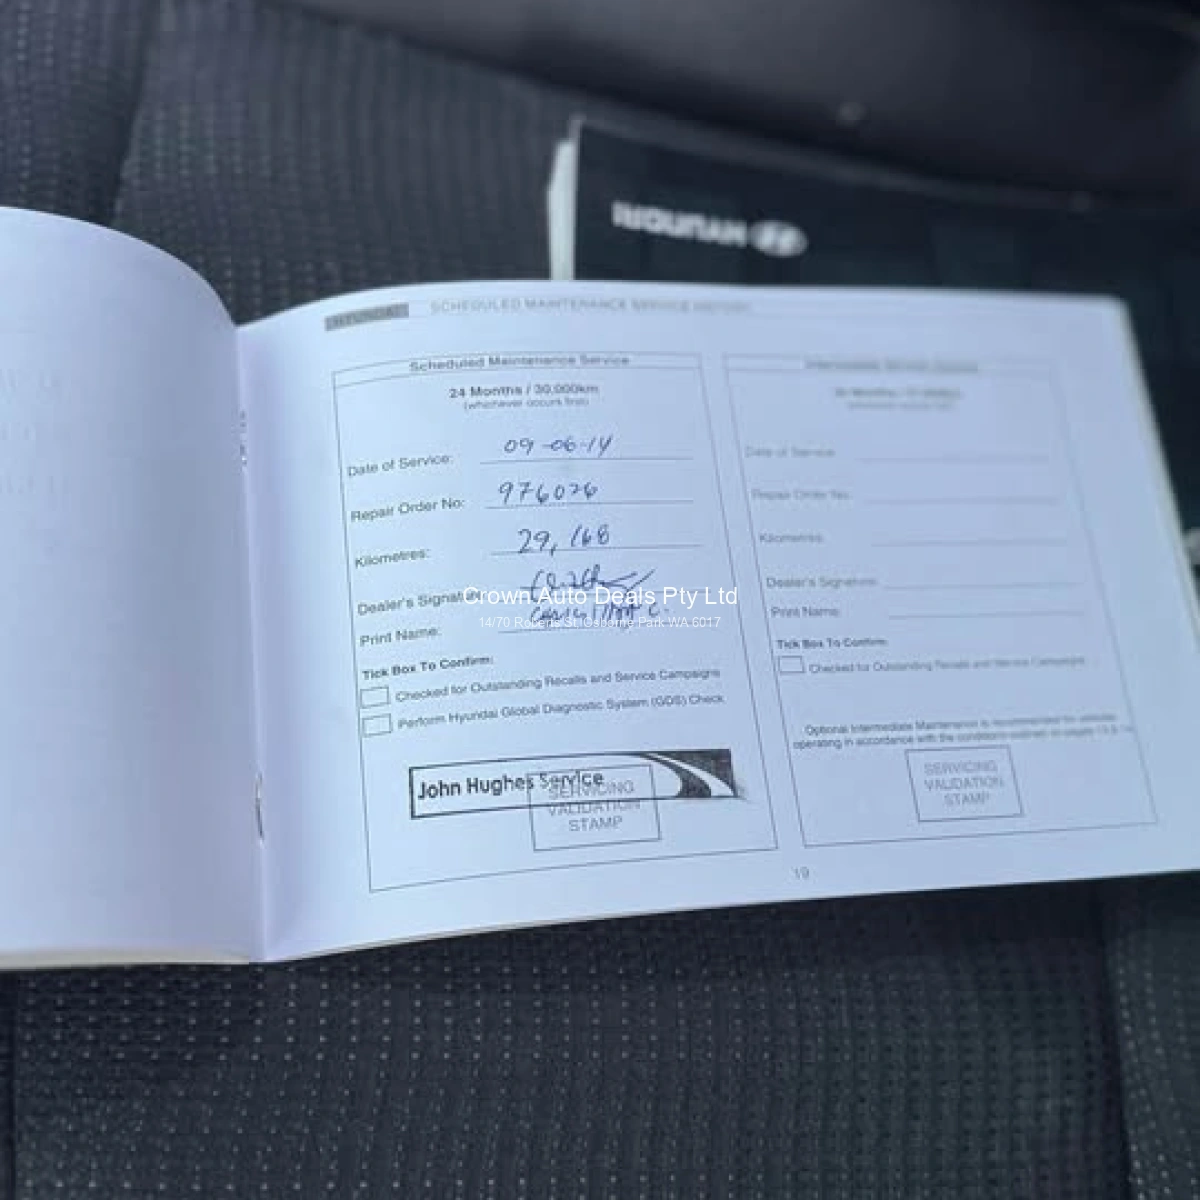 HYUNDAI
HYUNDAI SCHEDULED MAINTENANCE SERVICE HISTORY
Scheduled Maintenance Service
24 Months / 30,000km
(whichever occurs first)
Date of Service: 09-06-14
Repair Order No: 976026
Kilometres: 29,168
Dealer's Signature:
Print Name:
Tick Box To Confirm:
Checked for Outstanding Recalls and Service Campaigns
Perform Hyundai Global Diagnostic System (GDS) Check
John Hughes Service
SERVICING
VALIDATION
STAMP
Date of Service:
Repair Order No:
Kilometres:
Dealer's Signature:
Print Name:
Tick Box To Confirm:
Checked for Outstanding Recalls and Service Campaigns
Optional Intermediate Maintenance is recommended for vehicles
operating in accordance with the conditions outlined on pages
SERVICING
VALIDATION
STAMP
19
Crown Auto Deals Pty Ltd
14/70 Roberts St Osborne Park WA 6017